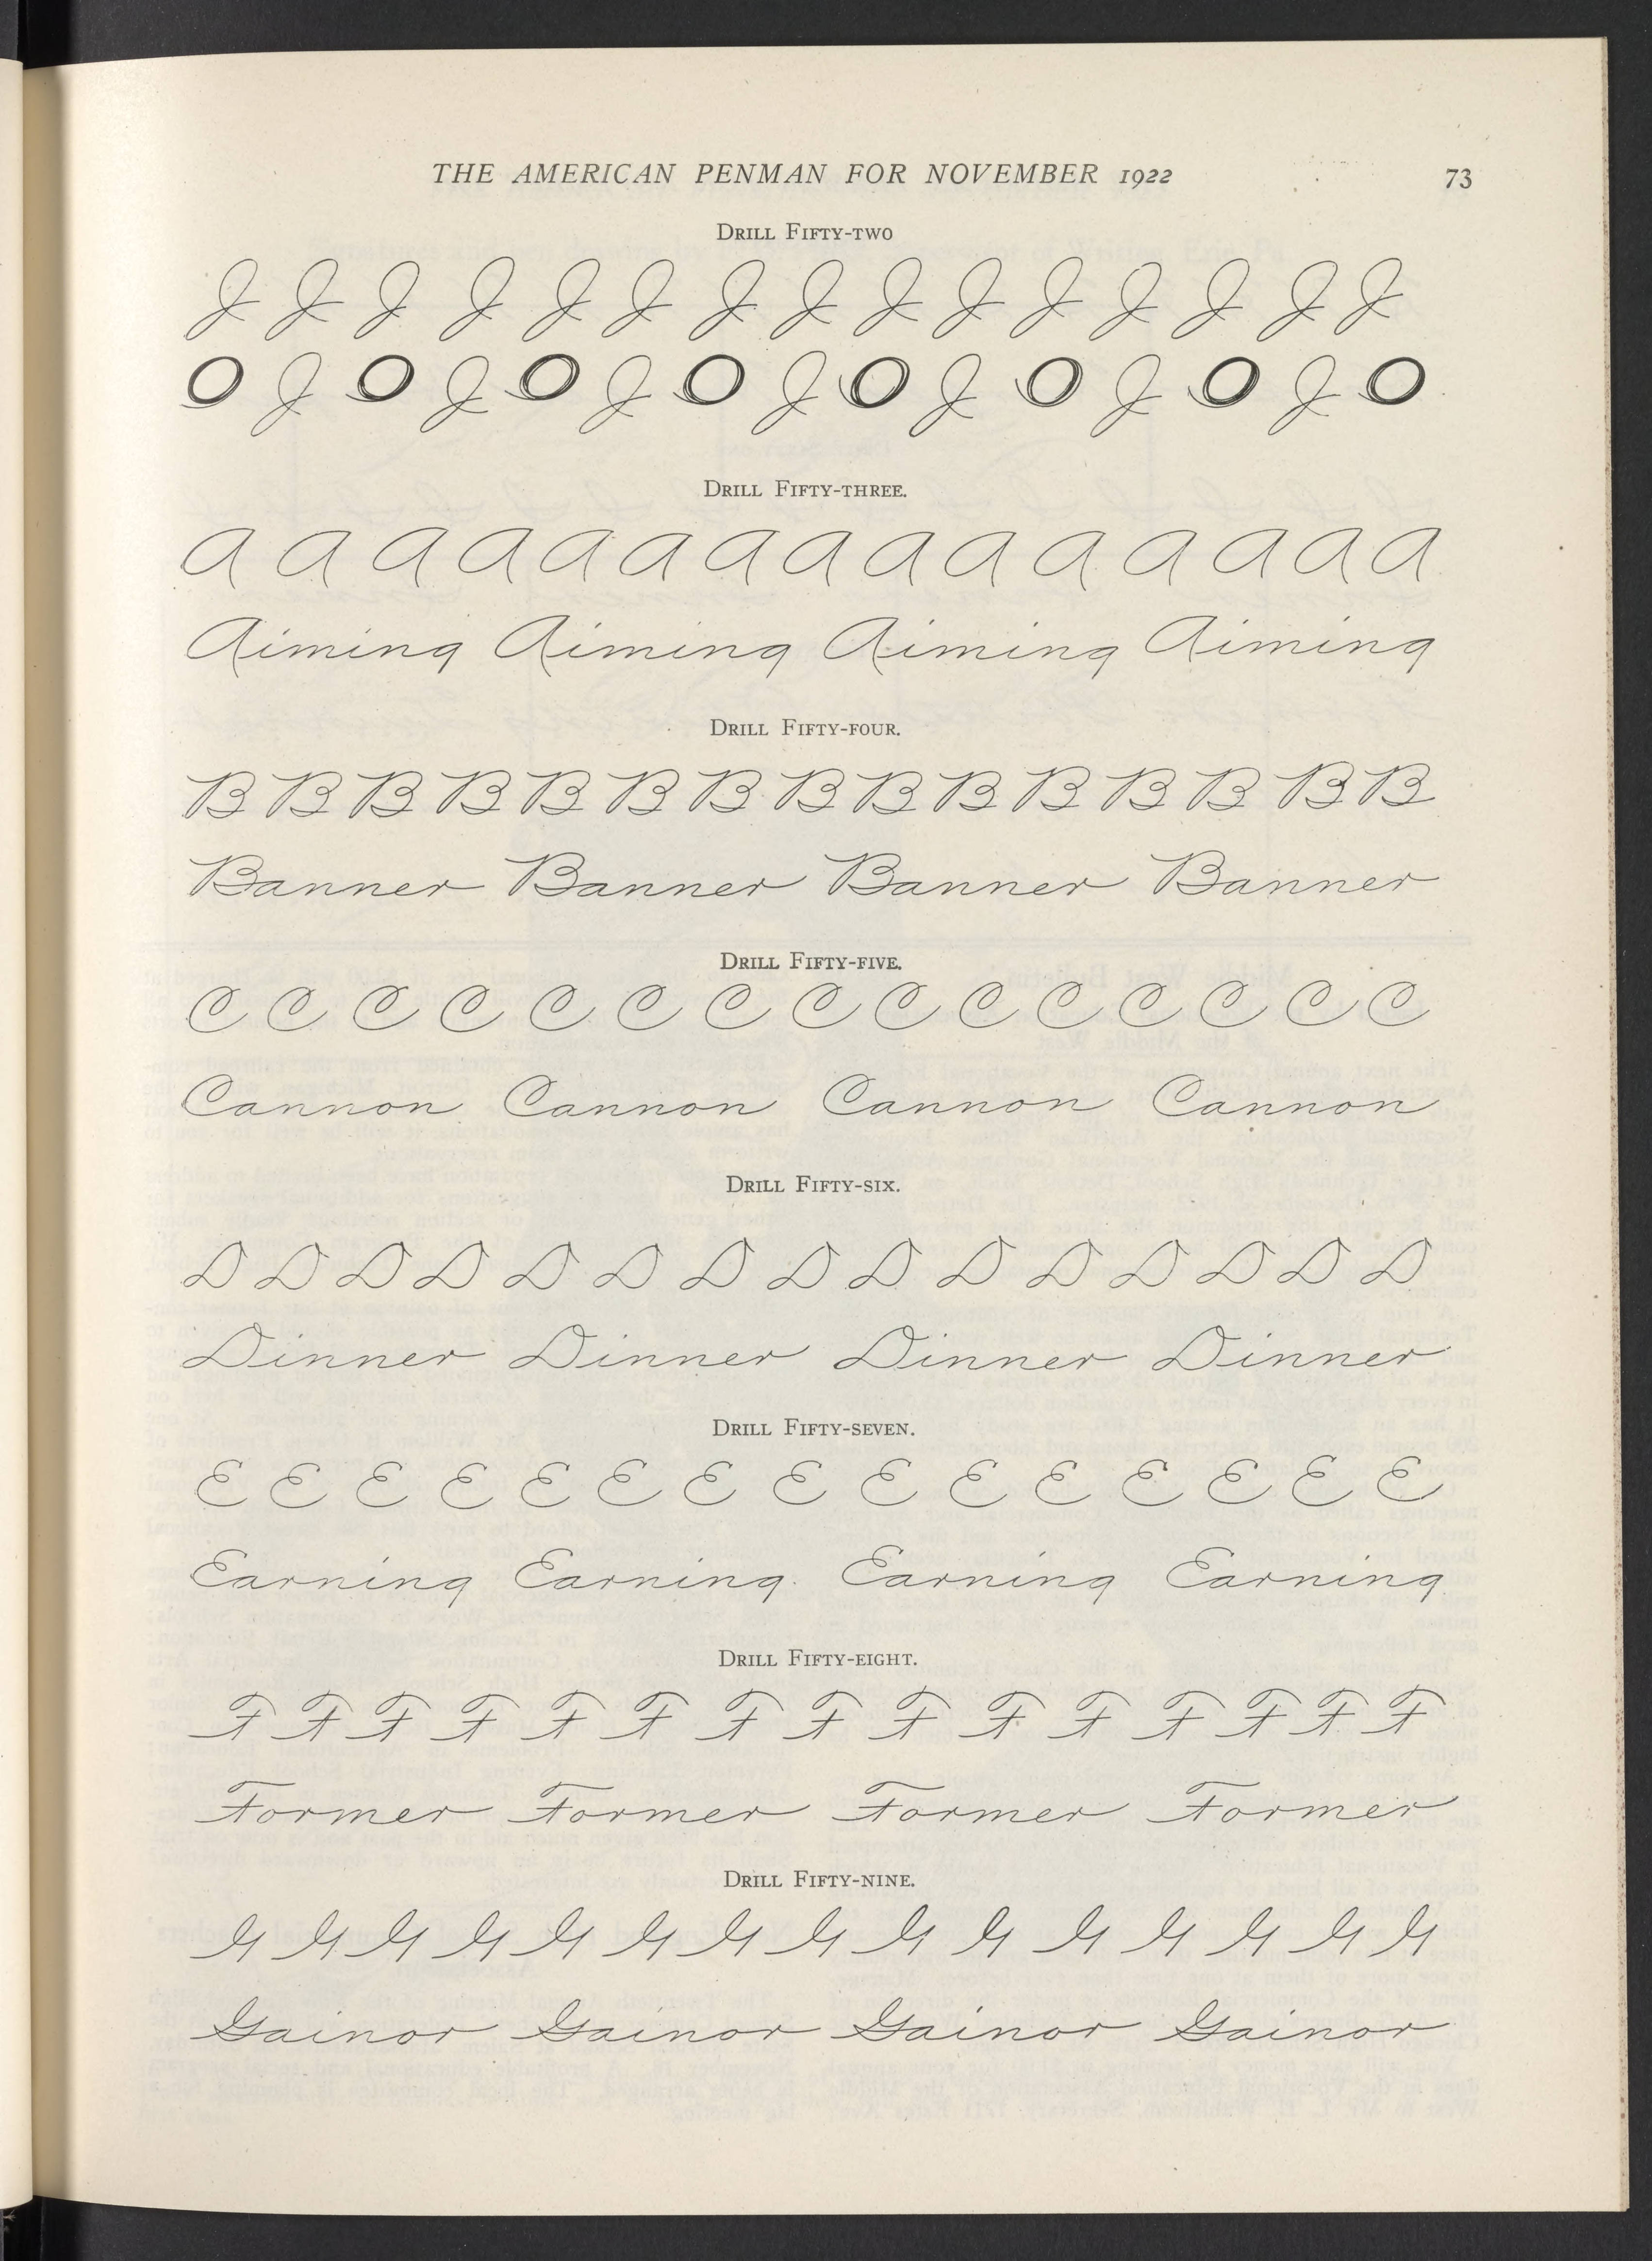 THE AMERICAN PENMAN FOR NOVEMBER 1922 73
DRILL FIFTY-TWO
J J J J J J J J J J J J J J J
O J O J O J O J O J O J O J O
DRILL FIFTY-THREE.
A A A A A A A A A A A A A A A
Aiming Aiming Aiming Aiming
DRILL FIFTY-FOUR.
B B B B B B B B B B B B B B B
Banner Banner Banner Banner
DRILL FIFTY-FIVE.
C C C C C C C C C C C C C C C
Cannon Cannon Cannon Cannon
DRILL FIFTY-SIX.
D D D D D D D D D D D D D D D
Dinner Dinner Dinner Dinner
DRILL FIFTY-SEVEN.
E E E E E E E E E E E E E E E
Earning Earning Earning Earning
DRILL FIFTY-EIGHT.
F F F F F F F F F F F F F F F
Former Former Former Former
DRILL FIFTY-NINE.
G G G G G G G G G G G G G G G
Gainor Gainor Gainor Gainor